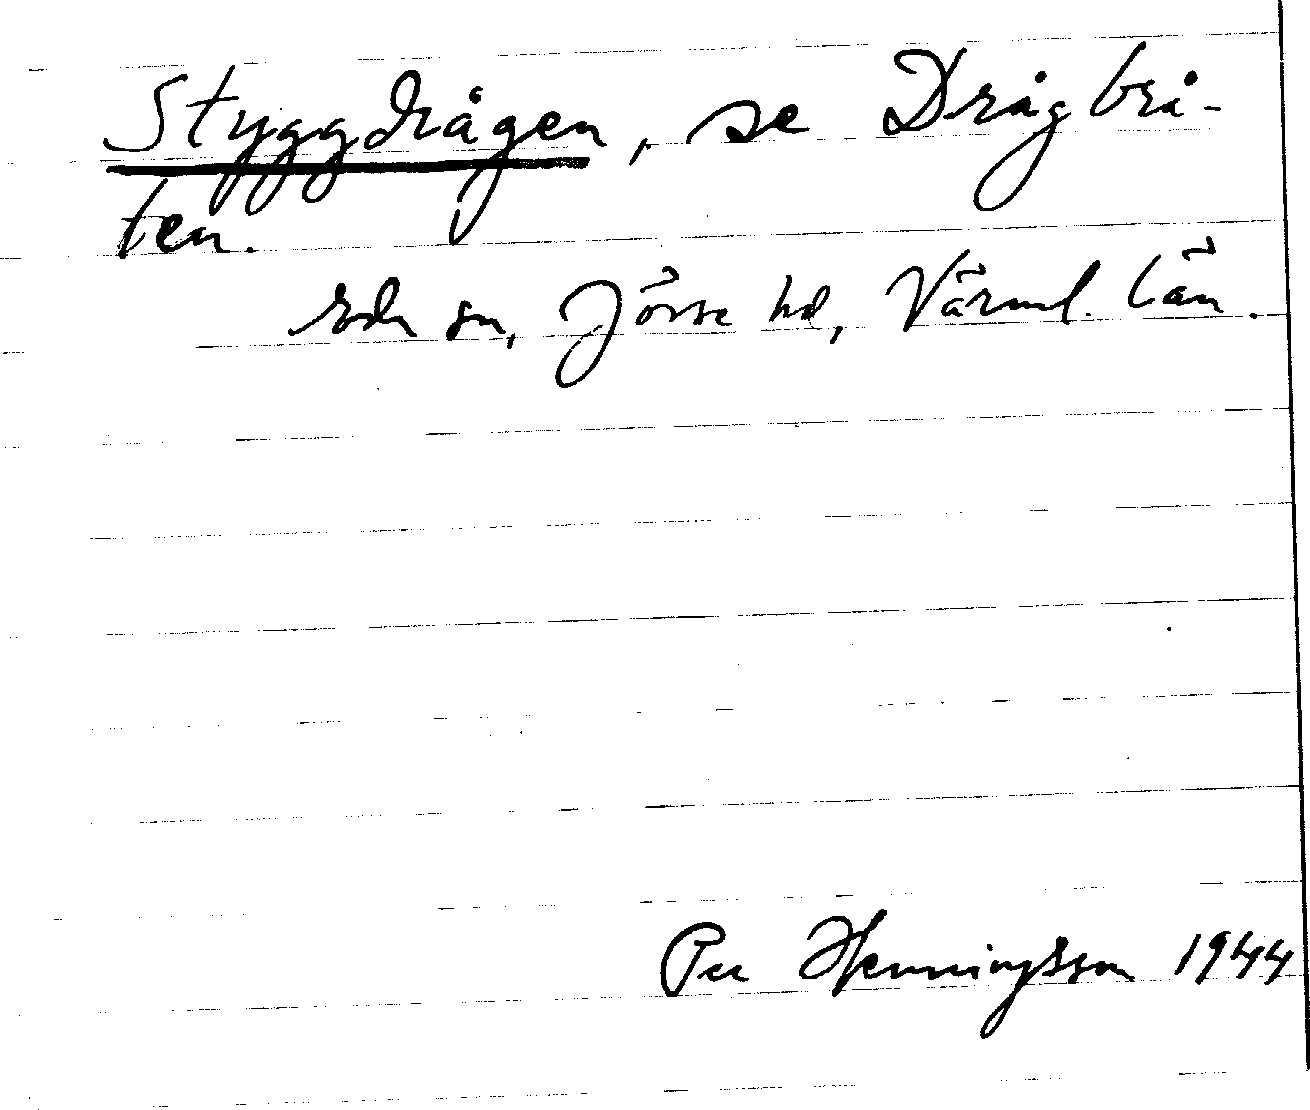 Styggdrågen, se Drågbrå-
ten.
sn, Jösse hd, Värml. län.
Per Henningsson 1944